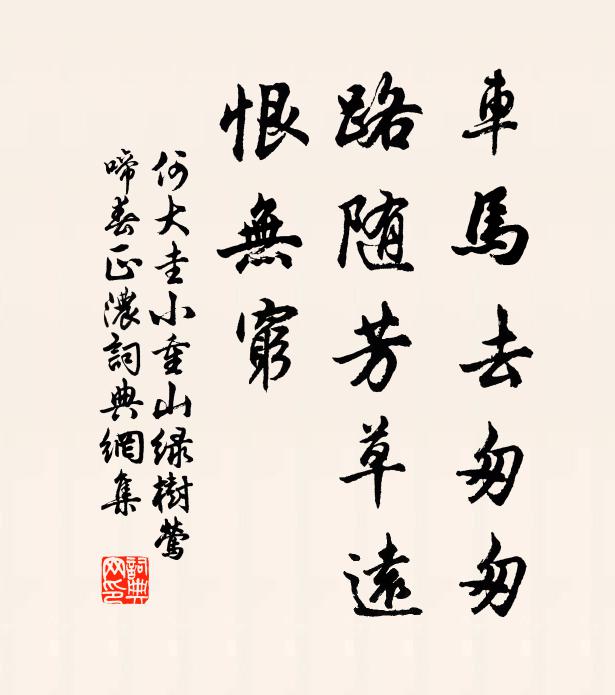 車馬去匆匆
路随芳草遠
恨無窮
何大圭小重山绿樹鶯
啼春正濃詞典網集
詞典
网印